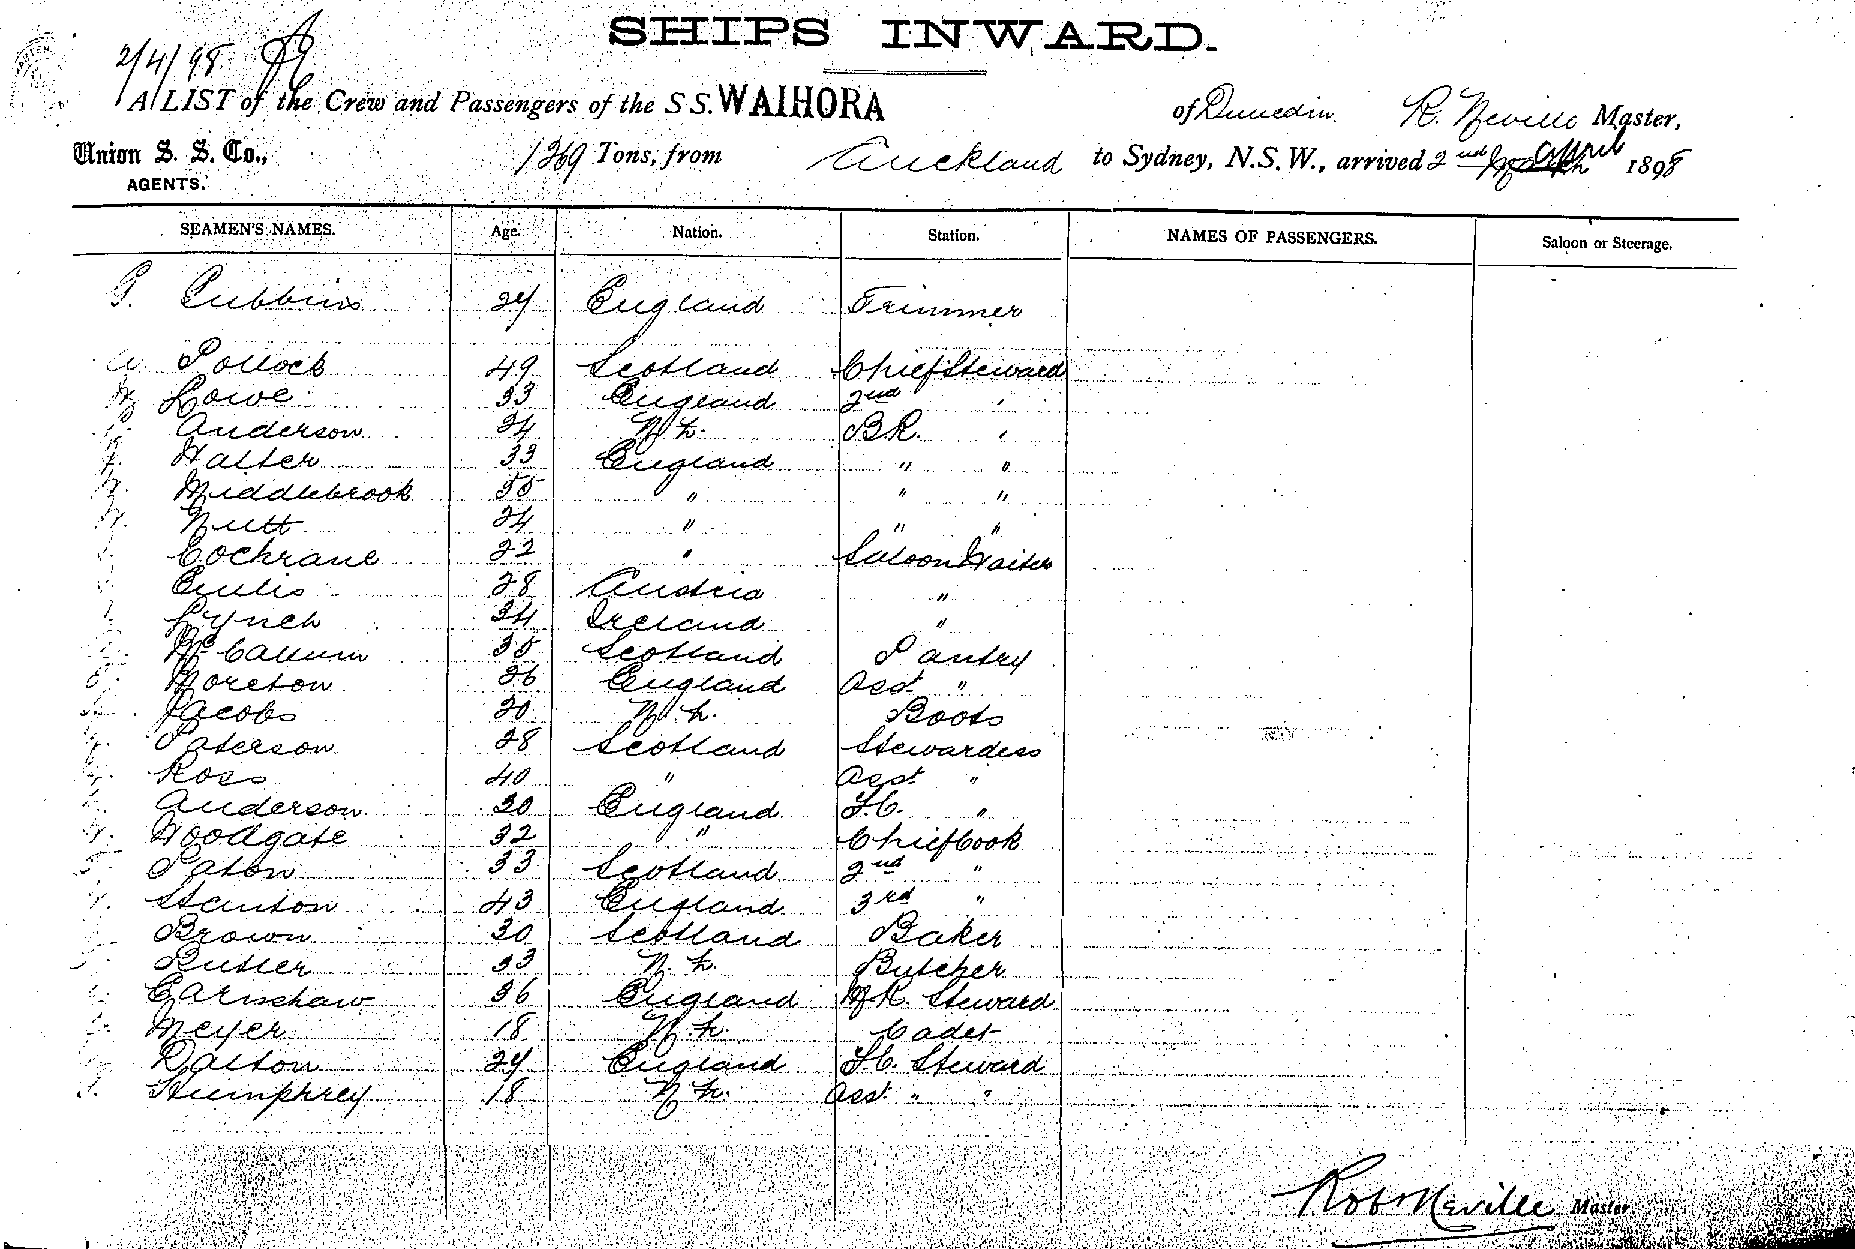 SHIPS INWARD.
2/4/98
A LIST of the Crew and Passengers of the S S. WAIHORA of Dunedin R. Neville Master,
Union S. S. Co., 1269 Tons, from Auckland to Sydney, N.S.W., arrived 2nd April 1898
AGENTS.
SEAMEN'S NAMES. Age. Nation. Station. NAMES OF PASSENGERS. Saloon or Steerage.
Cubbins 24 England Trimmer
Pollock 49 Scotland Chief Steward
Lowe 33 England 2nd "
Anderson 24 N.Z. B.R. "
33 England " "
Middlebrook 55 " " "
Nutt 24 " " "
Cochrane 22 " Saloon Waiter
28 Austria "
Lynch 34 Ireland "
McCallum 35 Scotland Pantry
Moreton 26 England Asst "
Jacobs 20 N.Z. Boots
Paterson 28 Scotland Stewardess
Ross 40 " Asst "
Anderson 30 England F.C. "
Woodgate 32 " Chief Cook
Paton 33 Scotland 2nd "
Stanton 43 England 3rd "
Brown 30 Scotland Baker
Butler 33 N.Z. Butcher
Earnshaw 36 England M.R. Steward
Meyer 18 N.Z. Cadet
Dalton 24 England F.C. Steward
Humphrey 18 N.Z. Asst " "
Robt Neville Master